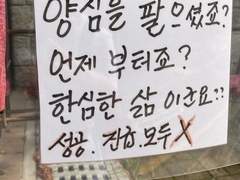 양심을 팔으셨죠?
언제 부터죠?
한심한 삶 이군요??
성공. 진급. 모두 X